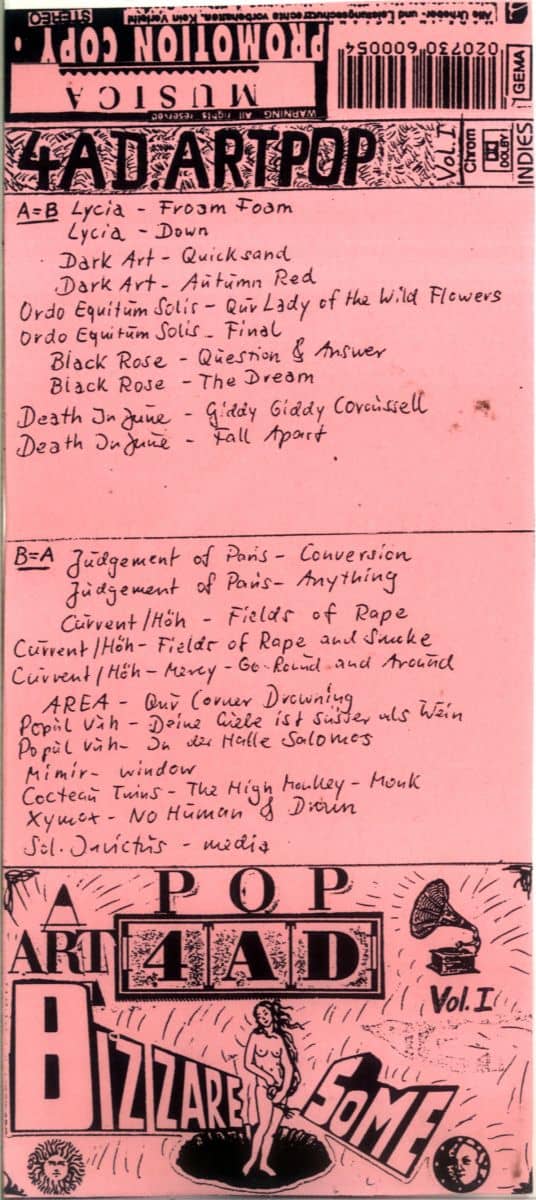 Alle Urheber- und Leistungsschutzrechte vorbehalten. Kein Verleih!
STEREO
PROMOTION COPY.
MUSICA
WARNING All rights reserved
020730 600054
GEMA
INDIES
4AD.ARTPOP
Vol.I
Chrom
DOLBY
A=B Lycia - Froam Foam
Lycia - Down
Dark Art - Quicksand
Dark Art - Autumn Red
Ordo Equitum Solis - Our Lady of the Wild Flowers
Ordo Equitum Solis - Final
Black Rose - Question & Answer
Black Rose - The Dream
Death In June - Giddy Giddy Caroussell
Death In June - Fall Apart
B=A Judgement of Paris - Conversion
Judgement of Paris - Anything
Current/Höh - Fields of Rape
Current/Höh - Fields of Rape and Smoke
Current/Höh - Mercy - Go-Round and Around
AREA - Our Corner Drowning
Popul Vuh - Deine Liebe ist süsser als Wein
Popul Vuh - In der Halle Salomos
Mimir - window
Cocteau Twins - The High Monkey - Monk
Xymox - No Human & Drown
Sol. Invictus - media
A POP
ART 4AD
Vol. I
BIZZARE
SOME